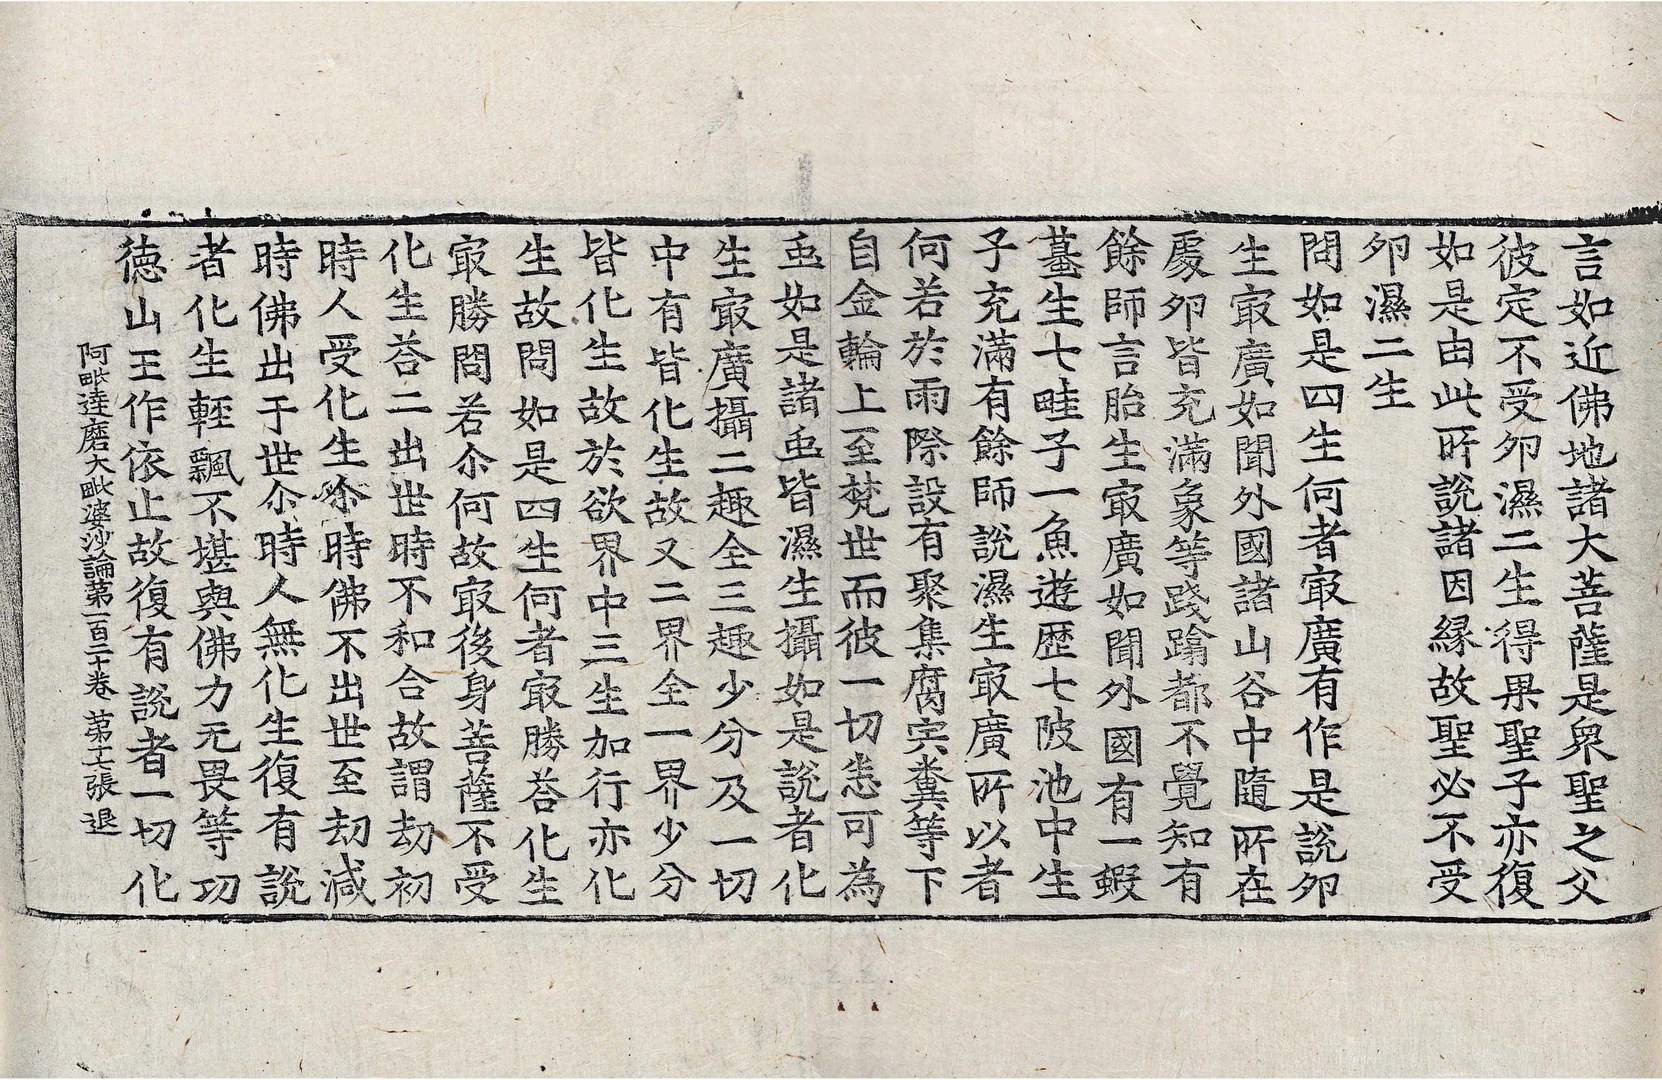 言如近佛地諸大菩薩是衆聖之父
彼定不受卵濕二生得果聖子亦復
如是由此所說諸因緣故聖必不受
卵濕二生
問如是四生何者㝡廣有作是說卵
生㝡廣如聞外國諸山谷中隨所在
處卵皆充滿象等踐蹹都不覺知有
餘師言胎生㝡廣如聞外國有一蝦
蟇生七畦子一魚遊歷七陂池中生
子充滿有餘師說濕生㝡廣所以者
何若於雨際設有聚集腐宍糞等下
自金輪上至梵世而彼一切悉可為
虫如是諸虫皆濕生攝如是說者化
生㝡廣攝二趣全三趣少分及一切
中有皆化生故又二界全一界少分
皆化生故於欲界中三生加行亦化
生故問如是四生何者㝡勝荅化生
㝡勝問若尒何故㝡後身菩薩不受
化生荅二出世時不和合故謂劫初
時人受化生尒時佛不出世至劫減
時佛出于世尒時人無化生復有說
者化生輕飄不堪與佛力无畏等功
德山王作依止故復有說者一切化
阿毗達磨大毗婆沙論第一百二十卷 第十七張 退